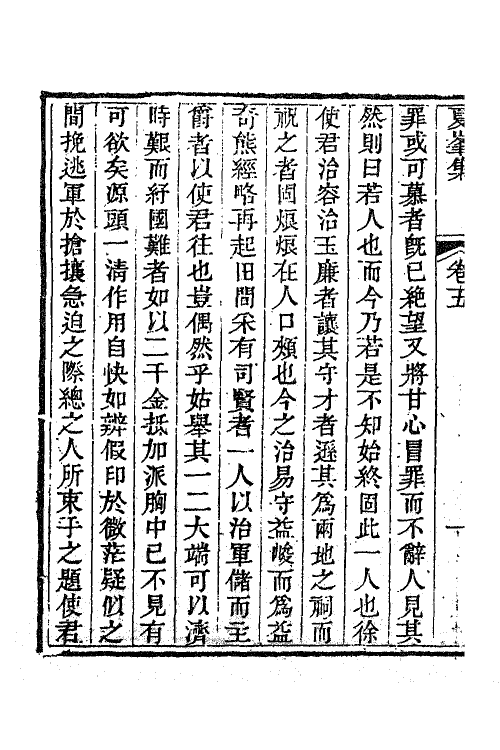 夏峯集
卷五
罪或可慕者旣已絶望又將甘心冒罪而不辭人見其
然則曰若人也而今乃若是不知始終固此一人也徐
使君治容治玉廉者讓其守才者遜其爲兩地之祠而
祝之者固烺烺在人口頰也今之治易守益峻而爲益
奇熊經略再起田間采有司賢者一人以治軍儲而主
爵者以使君往也豈偶然乎姑舉其一二大端可以濟
時艱而紓國難者如以二千金抵加派胸中已不見有
可欲矣源頭一清作用自快如辨假印於微茫疑似之
間挽逃軍於搶攘急迫之際總之人所束手之題使君